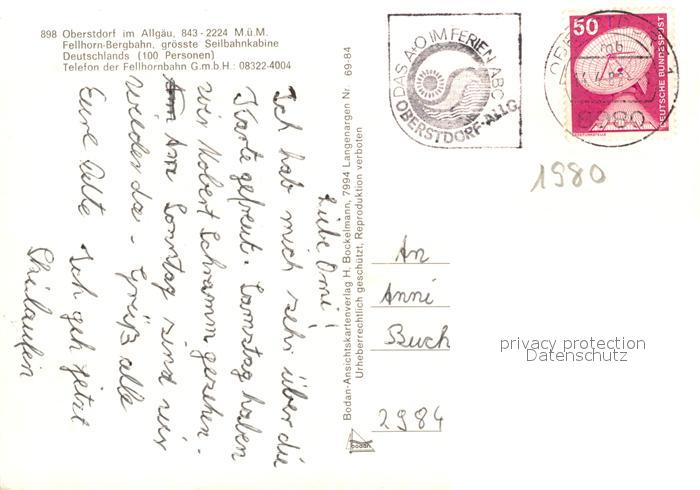 898 Oberstdorf im Allgäu, 843 - 2224 M.ü.M.
Fellhorn-Bergbahn, grösste Seilbahnkabine
Deutschlands (100 Personen)
Telefon der Fellhornbahn G.m.b.H: 08322-4004
DAS A+O IM FERIEN ABC
OBERSTDORF-ALLG.
50
DEUTSCHE BUNDESPOST
8980
1980
Liebe Omi!
Ich hab mich sehr über die
Karte gefreut. Samstag haben
wir Norbert Schramm gesehen.
Am Sonntag sind wir
wieder da. Grüß alle
Eure Ulte Ich geh jetzt
Skilaufen
Bodan-Ansichtskartenverlag H. Bockelmann, 7994 Langenargen Nr. 69-84
Urheberrechtlich geschützt, Reproduktion verboten
bodan
An
Anni
Buch
2984
privacy protection
Datenschutz